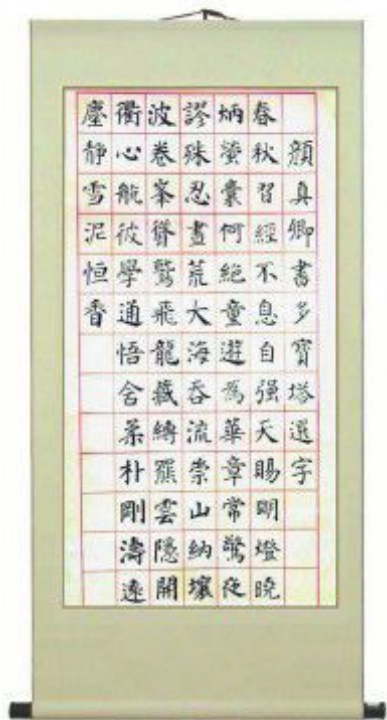 顏真卿書多寶塔選字
春秋習經不息自强天賜明燈曉
炳螢囊何絕童遊為華章常驚夜
謬殊忍晝荒大海吞流崇山納壤
波卷峯聳鷲飛龍藏縛羆雲隱開
衢心航彼學通悟舍柔朴剛濤遠
塵靜雪泥恒香